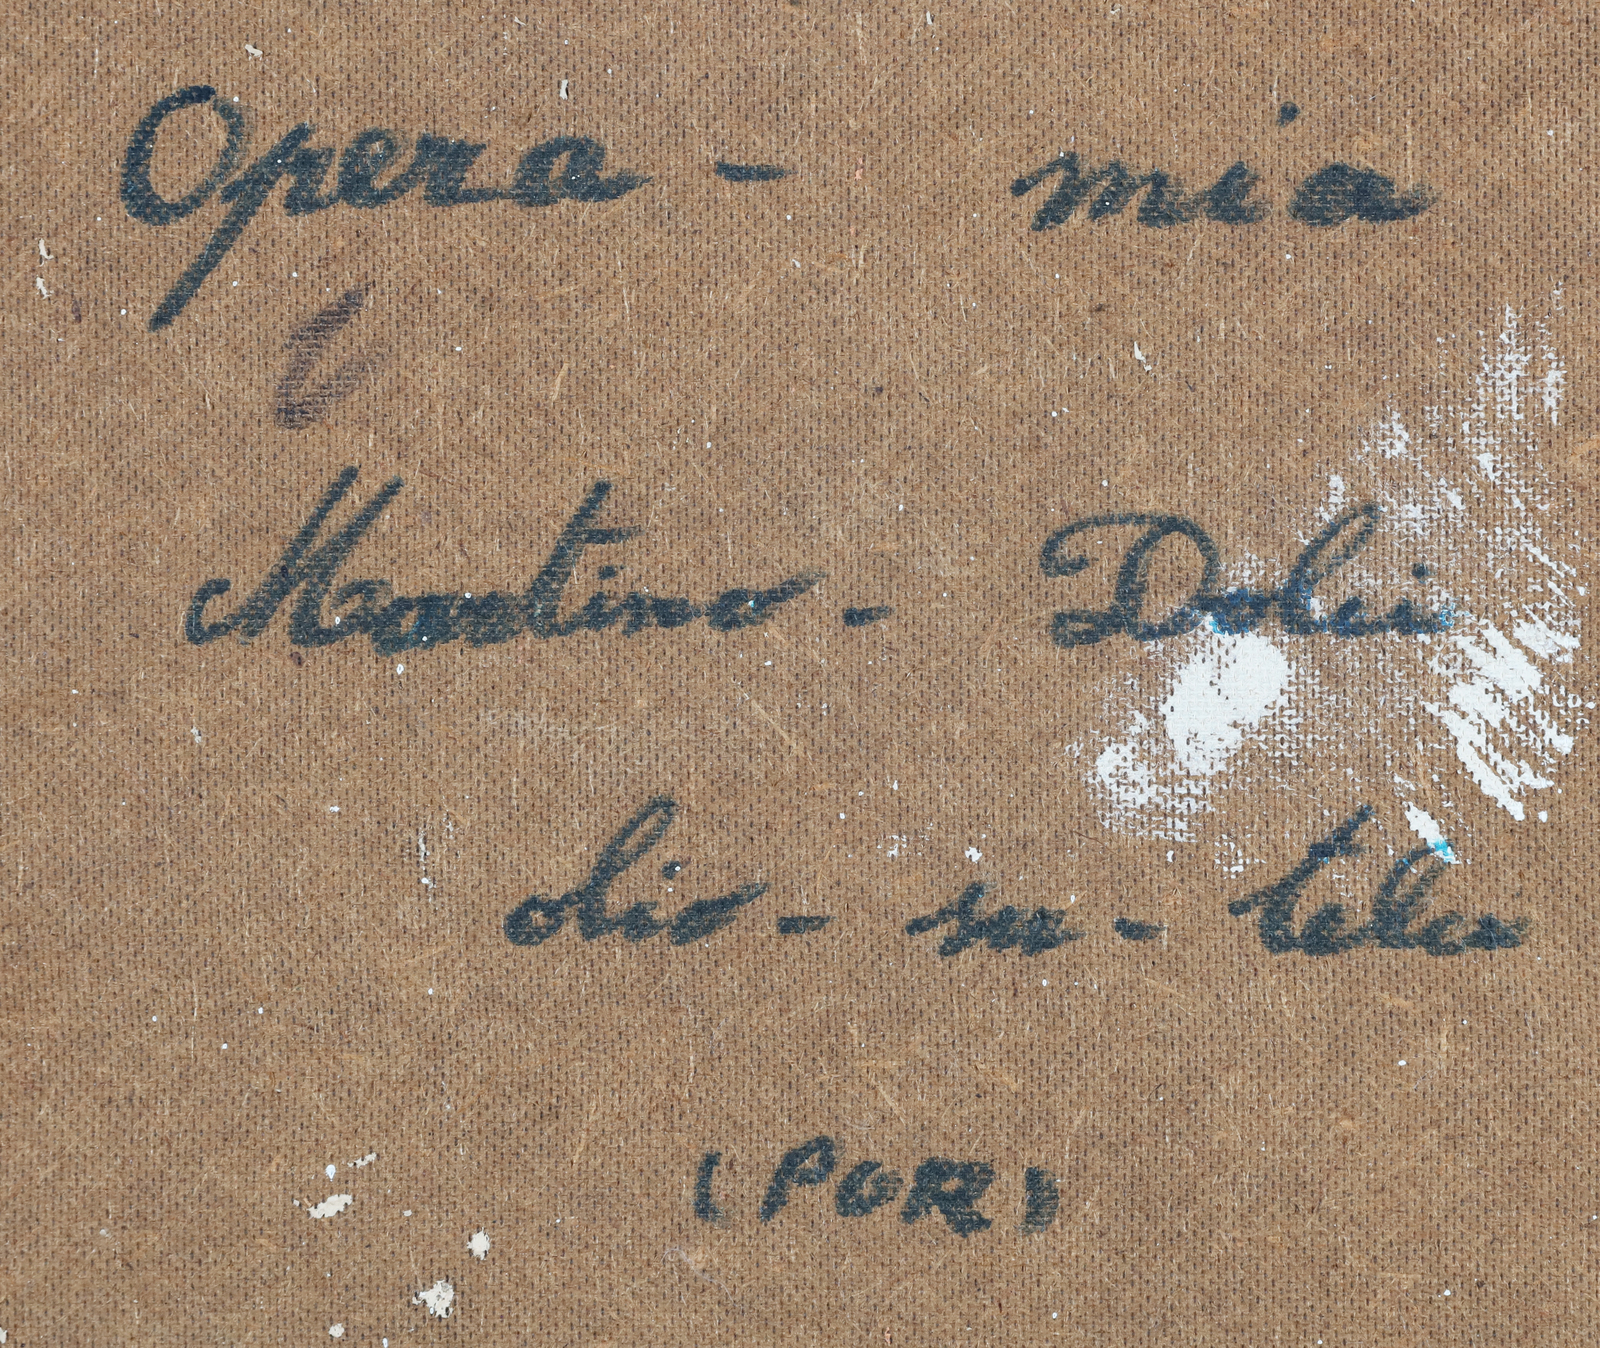 Opera - mia
Martino - Dolci
olio - su - tela
(POR)